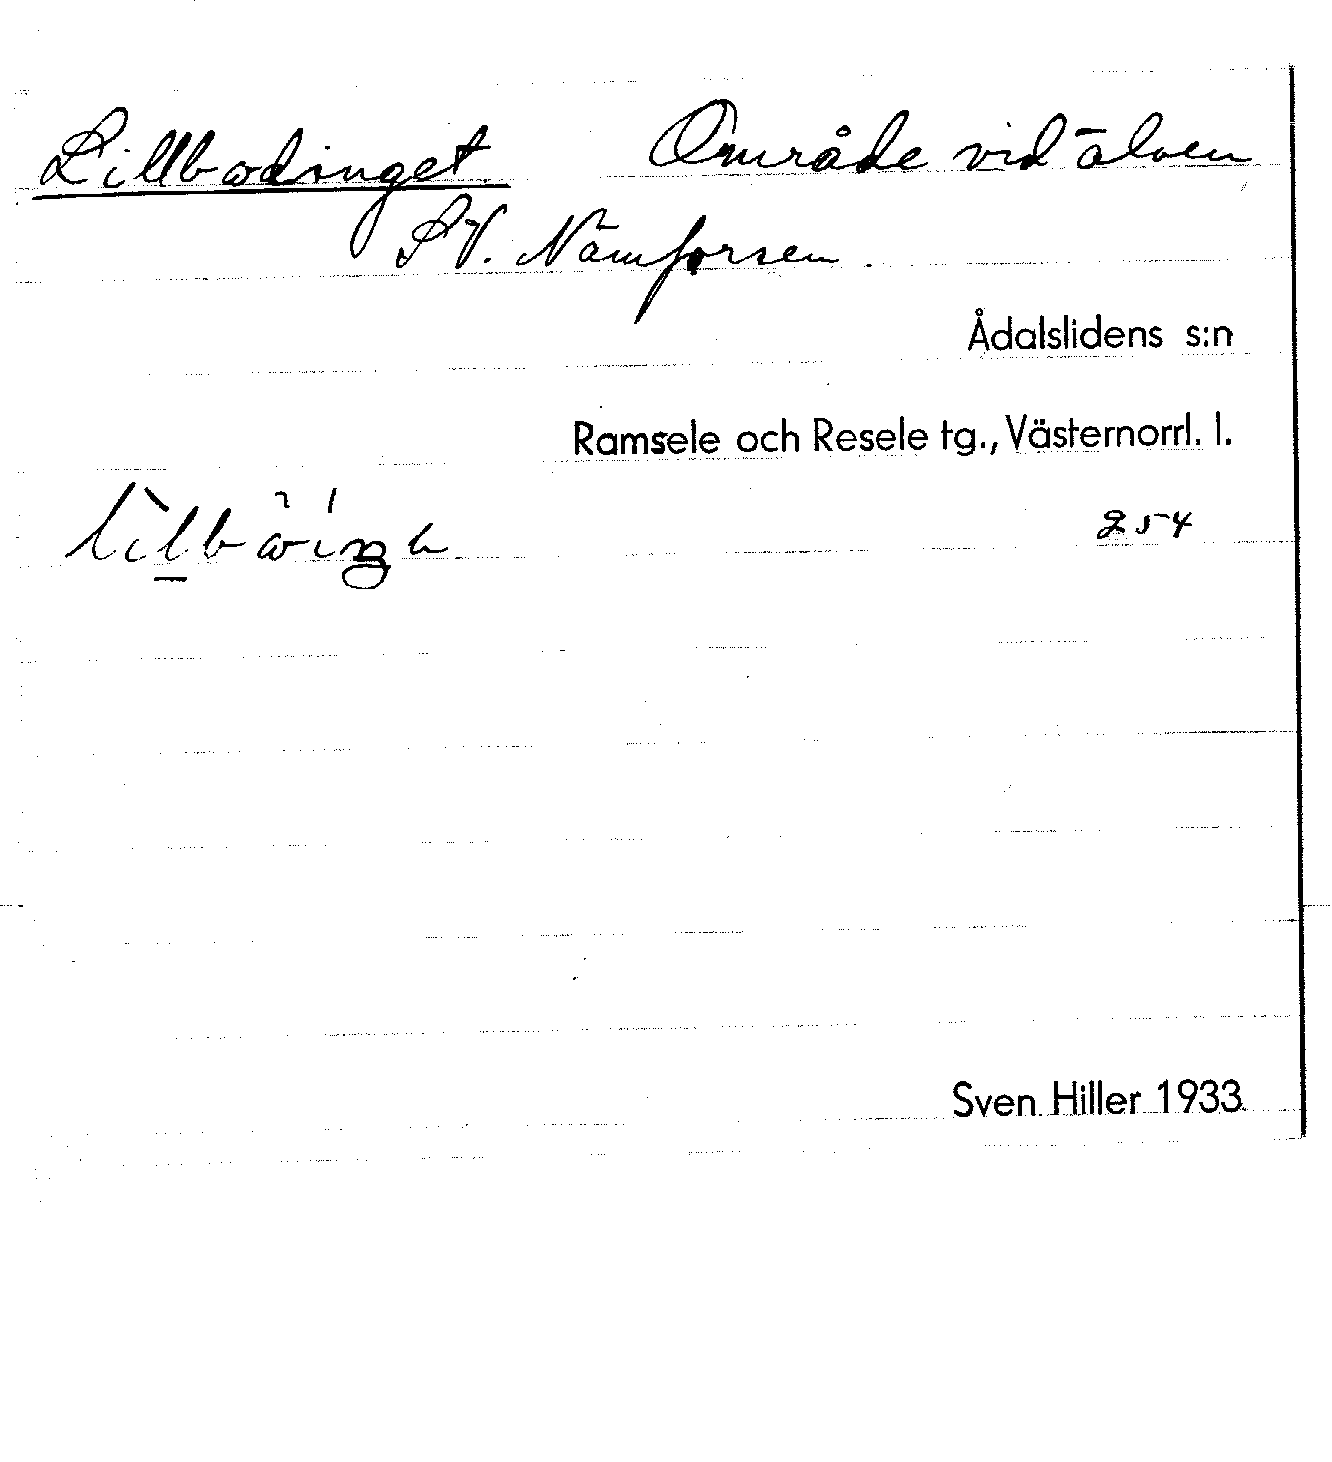 Lillbodinget Område vid älven
SV. Nämforsen.
Ådalslidens s:n
Ramsele och Resele tg., Västernorrl. l.
254
Sven Hiller 1933